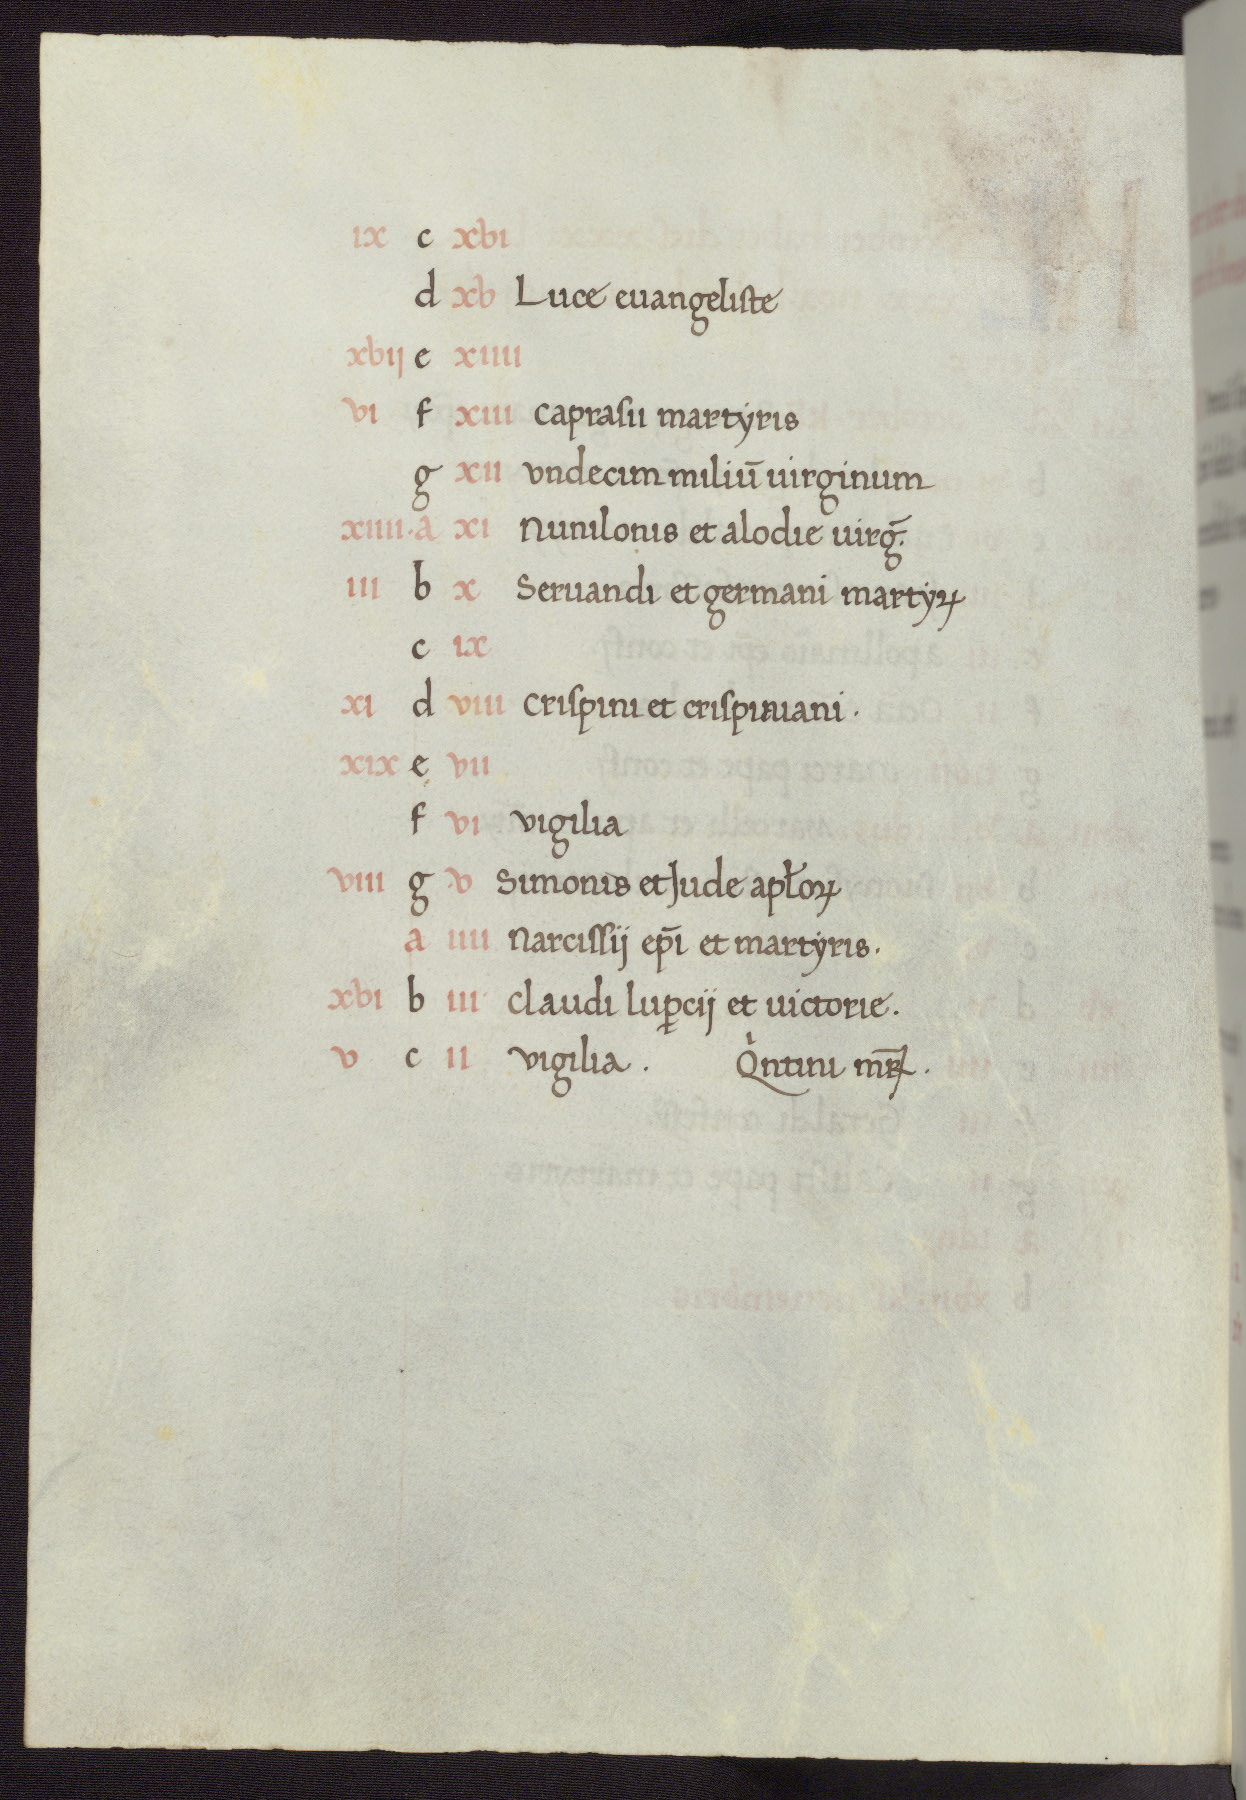 ix c xbi
d xb Luce euangeliste
xbij e xiiii
vi f xiii caprasii martyris
g xii vndecim miliū uirginum
xiiii · a xi Nunilonis et alodie uirḡ.
iii b x Seruandi et germani martyꝝ
c ix
xi d viii crispini et crispiniani ·
xix e vii
f vi vigilia
viii g v Simonis et Jude apłoꝝ
a iiii Narcissij ep̄i et martyris ·
xbi b iii claudi luꝑcij et uictorie .
v c ii vigilia . Qintini mr̄ꝝ .